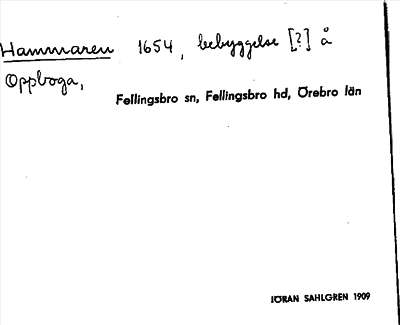 Hammaren 1654, bebyggelse [?] å
Oppboga,
Fellingsbro sn, Fellingsbro hd, Örebro län
JÖRAN SAHLGREN 1909